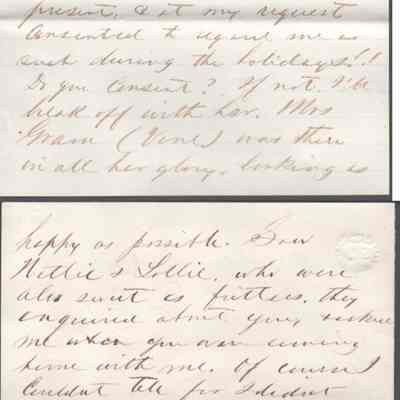 present, & at my request
consented to regard me as
such during the holidays!!
Do you consent? If not I'll
break off with her. Mrs
Gwain (Vine) was there
in all her glory, looking as
happy as possible. Saw
Nellie & Lollie, who were
also sweet as fritters. they
enquired about you, & asked
me when you were coming
home with me. Of course I
couldnt tell for I didnt